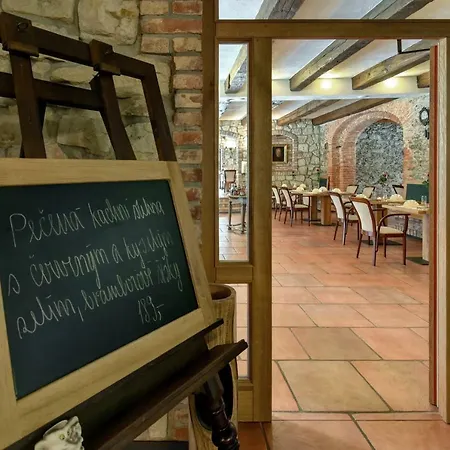 Pečená kachní stehna
s červeným a kyselým
zelím, bramborové knedlíky
189,-